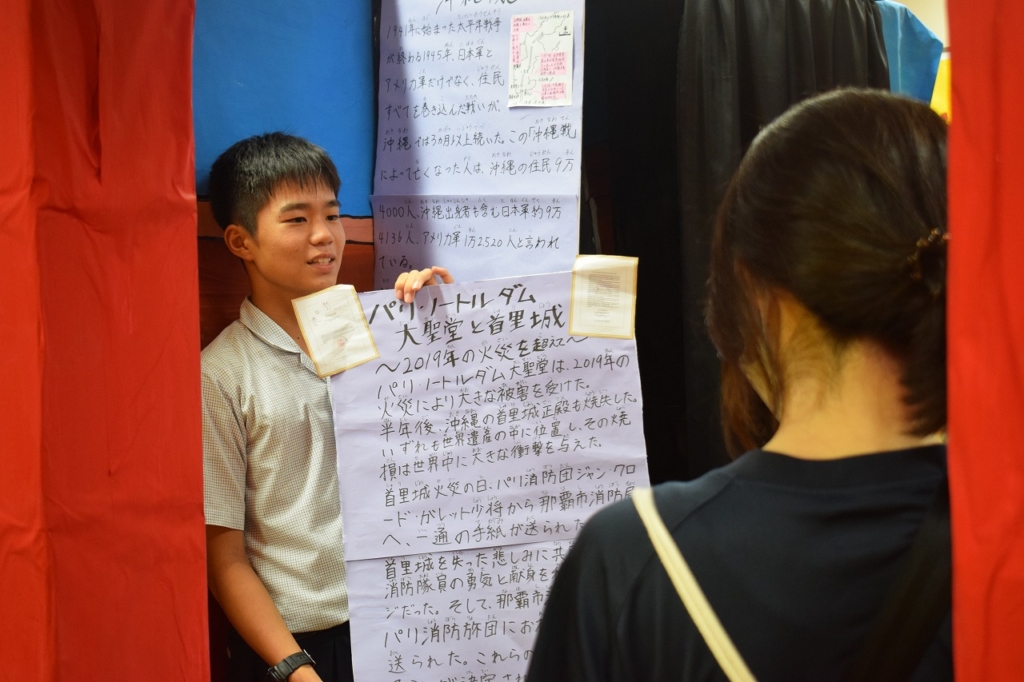 1941年に始まった太平洋戦争
が終わる1945年、日本軍と
アメリカ軍だけでなく、住民
すべてを巻き込んだ戦いが、
沖縄では3ヵ月以上続いた。この「沖縄戦」
によって亡くなった人は、沖縄の住民9万
4000人、沖縄出身者も含む日本軍約9万
4136人、アメリカ軍1万2520人と言われ
ている。
パリ・ノートルダム
大聖堂と首里城
〜2019年の火災を超えて〜
パリ ノートルダム大聖堂は、2019年の
火災により大きな被害を受けた。
半年後、沖縄の首里城正殿も焼失した。
いずれも世界遺産の中に位置し、その焼
損は世界中に大きな衝撃を与えた。
首里城火災の日、パリ消防団ジャン・クロ
ード・ガレット少将から那覇市消防局
へ、一通の手紙が送られた
首里城を失った悲しみに共
消防隊員の勇気と献身を
ジだった。そして、那覇市
パリ消防旅団にお
送られた。これらの